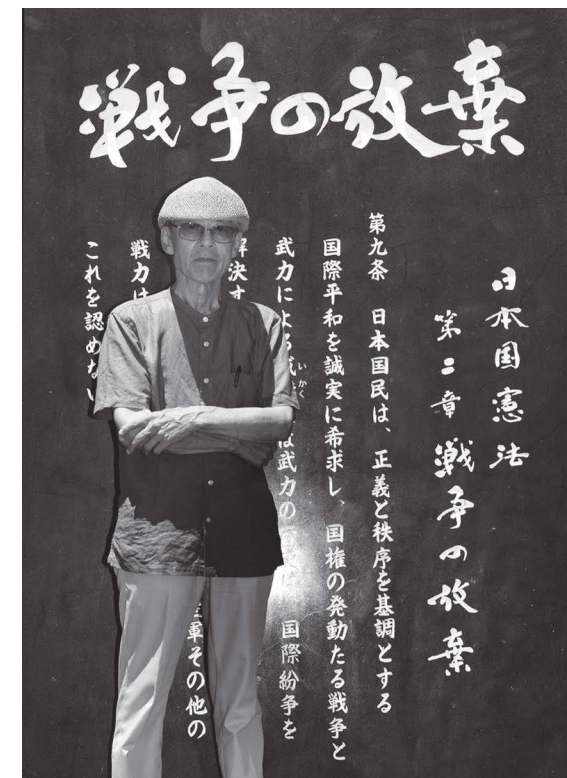 戦争の放棄
日本国憲法
第二章 戦争の放棄
第九条 日本国民は、正義と秩序を基調とする
国際平和を誠実に希求し、国権の発動たる戦争と
武力による いかく は武力の 国際紛争を
解決す
軍その他の
戦力は
これを認めない